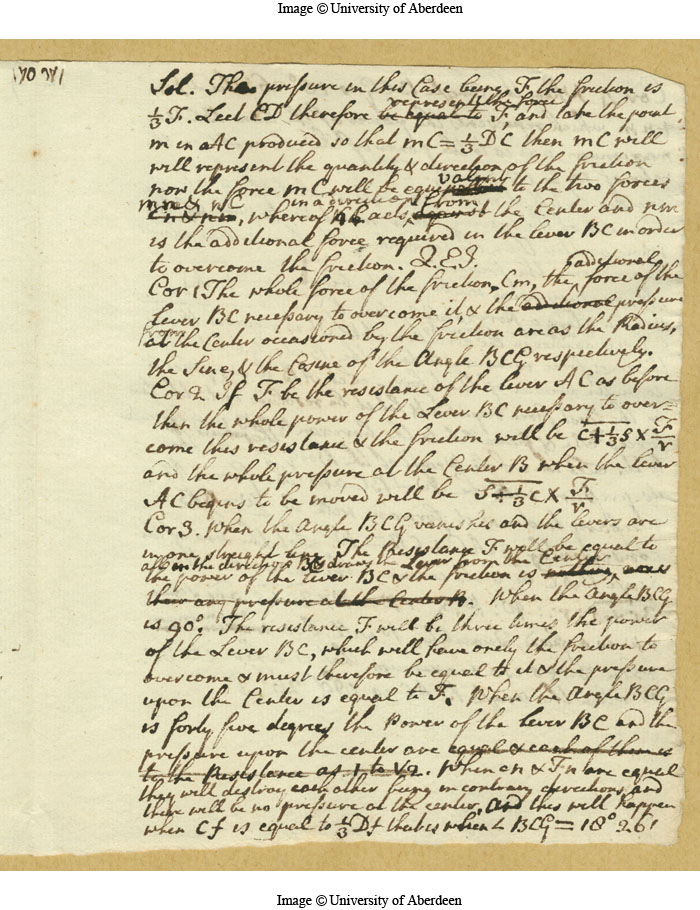 Image © University of Aberdeen
Sol. The pressure in this Case being F the friction is
⅓ F. Lect CD therefore be equal to represent the force F, and take the point
m in AC produced so that mC = ⅓ DC then mC will
will represent the quantity & direction of the friction
now the force mC will be equivalent to the two forces
mn & nC in a direction from
Cn & nm, whereof acts against the Center and nm
is the additional force required in the lever BC in order
to overcome the friction. Q.E.I.
Cor 1 The whole force of the friction, Cm, the additional force of the
Lever BC necessary to overcome it, & the additional pressure
from
at the Center occasioned by the friction are as the Radius,
the Sine, & the Cosine of the Angle BCG respectively.
Cor 2. If F be the resistance of the lever AC as before
then the whole power of the Lever BC necessary to over=
come this resistance & the friction will be c+⅓s × F/r
and the whole pressure at the Center B when the lever
AC begins to be moved will be s-⅓c × F/r
Cor 3. When the Angle BCG vanishes and the levers are
in one streight line. The Resistance F will be equal to
all in the direction BC drawing the Lever from the Center
the power of the lever BC & the friction is nothing,
their any pressure at the Center B. When the Angle BCG
is 90°. The resistance F will be three times the power
of the Lever BC, which will have onely the friction to
overcome & must therefore be equal to it & the pressure
upon the Center is equal to F. When the Angle BCG
is forty five degrees the Power of the lever BC and the
pressure upon the center are equal & each of them is
to the Resistance as 1 to √2. When cn & Fn are equal
they will destroy each other being in contrary directions, and
there will be no pressure at the center, and this will happen
when Cf is equal to ⅓ Df that is when ∠ BCG = 18° 26'
Image © University of Aberdeen